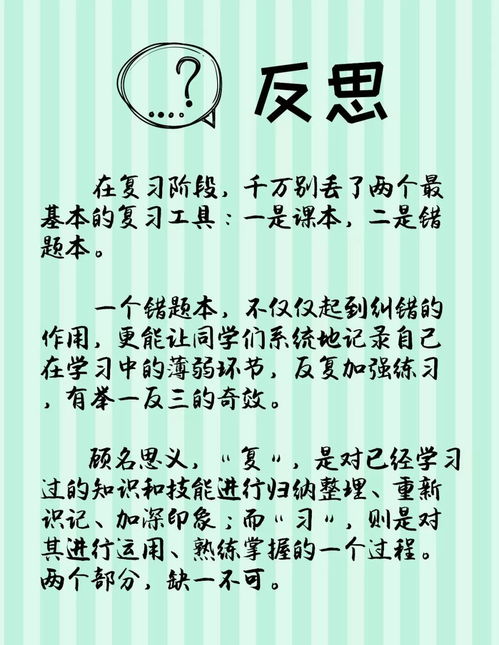 ?
....
反思
在复习阶段，千万别丢了两个最
基本的复习工具：一是课本，二是错
题本。
一个错题本，不仅仅起到纠错的
作用，更能让同学们系统地记录自己
在学习中的薄弱环节，反复加强练习
，有举一反三的奇效。
顾名思义，“复”，是对已经学习
过的知识和技能进行归纳整理、重新
识记、加深印象；而“习”，则是对
其进行运用、熟练掌握的一个过程。
两个部分，缺一不可。